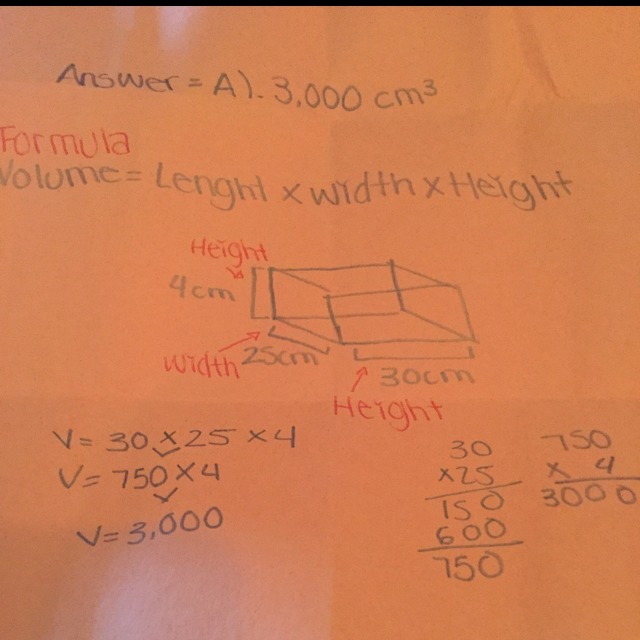 Answer = A). 3,000 cm³
Formula
Volume = Lenght x width x Height
Height
4cm
Width 25cm
30cm
Height
V= 30 x 25 x 4
V= 750 x 4
V= 3,000
30
x25
150
600
750
750
x 4
3000